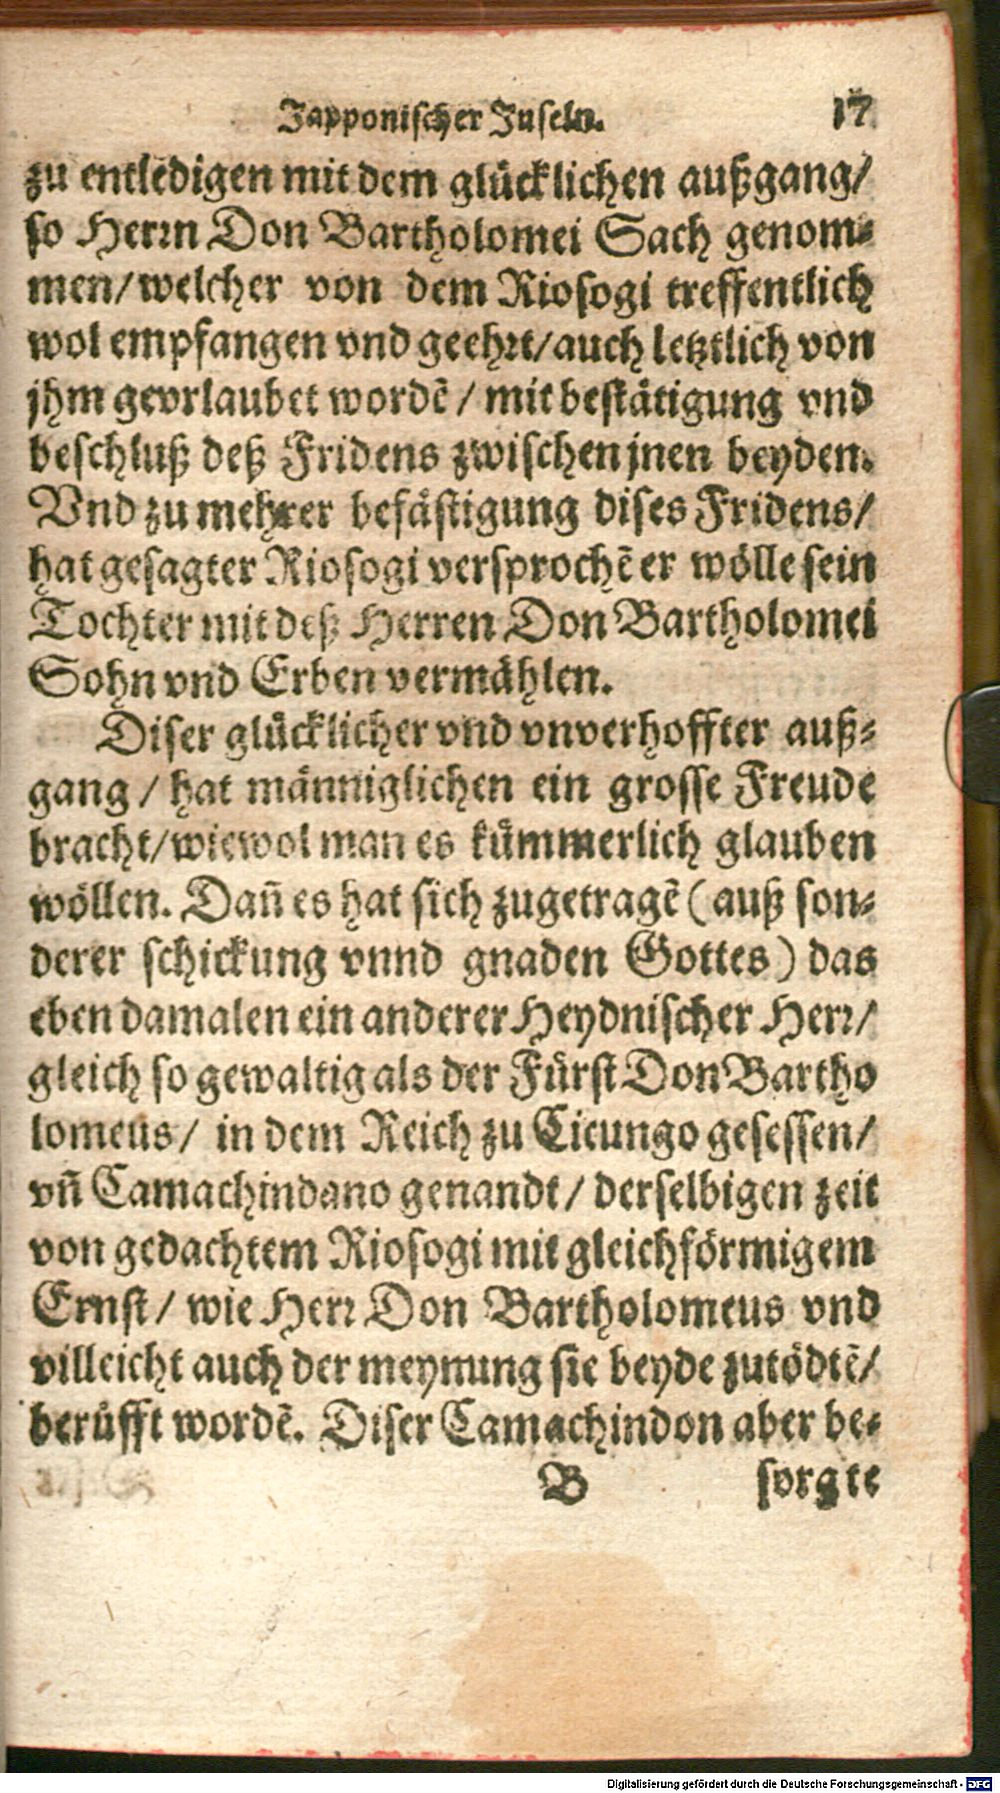 Japponischer Inseln. 17
zu entledigen mit dem glücklichen außgang/
so Herrn Don Bartholomei Sach genom-
men/welcher von dem Riosogi treffentlich
wol empfangen vnd geehrt/auch letztlich von
jhm gevrlaubet wordē / mit bestätigung vnd
beschluß deß Fridens zwischen jnen beyden.
Vnd zu mehrer befästigung dises Fridens/
hat gesagter Riosogi versprochē er wölle sein
Tochter mit deß Herren Don Bartholomei
Sohn vnd Erben vermählen.
Diser glücklicher vnd vnverhoffter auß-
gang / hat männiglichen ein grosse Freude
bracht/wiewol man es kümmerlich glauben
wöllen. Dañ es hat sich zugetragē (auß son-
derer schickung vnnd gnaden Gottes) das
eben damalen ein anderer Heydnischer Herr/
gleich so gewaltig als der Fürst Don Bartho
lomeus/ in dem Reich zu Cicungo gesessen/
vñ Camachindano genandt/ derselbigen zeit
von gedachtem Riosogi mit gleichförmigem
Ernst/ wie Herr Don Bartholomeus vnd
villeicht auch der meynung sie beyde zutödtē/
berüfft wordē. Diser Camachindon aber be-
B sorgte
Digitalisierung gefördert durch die Deutsche Forschungsgemeinschaft - DFG